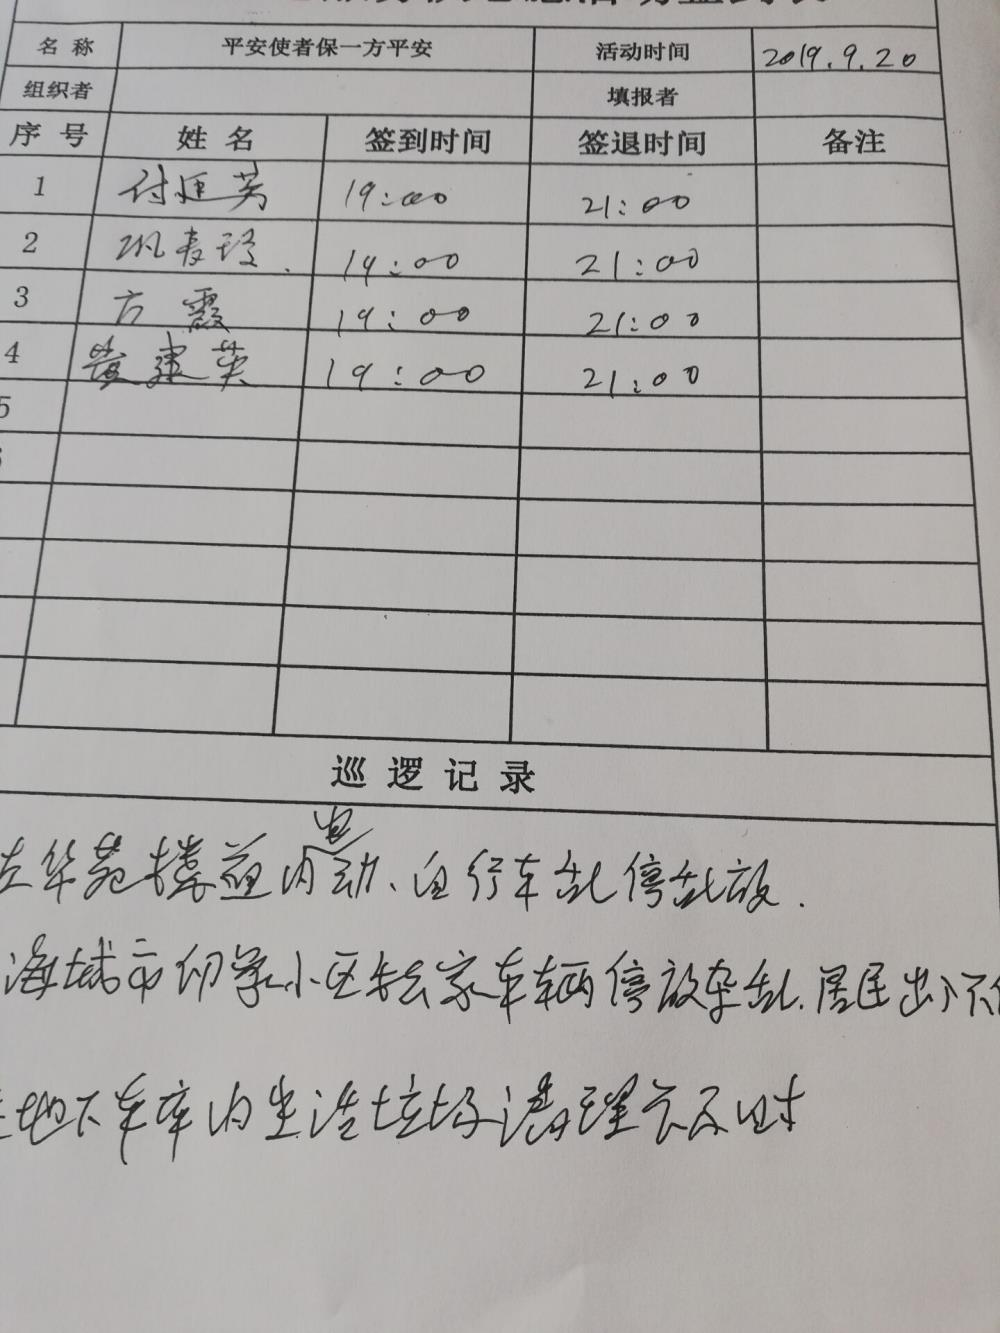 名 称 平安使者保一方平安 活动时间 2019.9.20
组织者 填报者
序 号 姓 名 签到时间 签退时间 备注
1 付廷芳 19:00 21:00
2 巩青玲. 19:00 21:00
3 方 霞 19:00 21:00
4 黄建英 19:00 21:00
5
巡 逻 记 录
华苑楼道内电动、自行车乱停乱放.
海城市印象小区 车辆停放杂乱.居民出入不
地下车库内生活垃圾清理 不及时